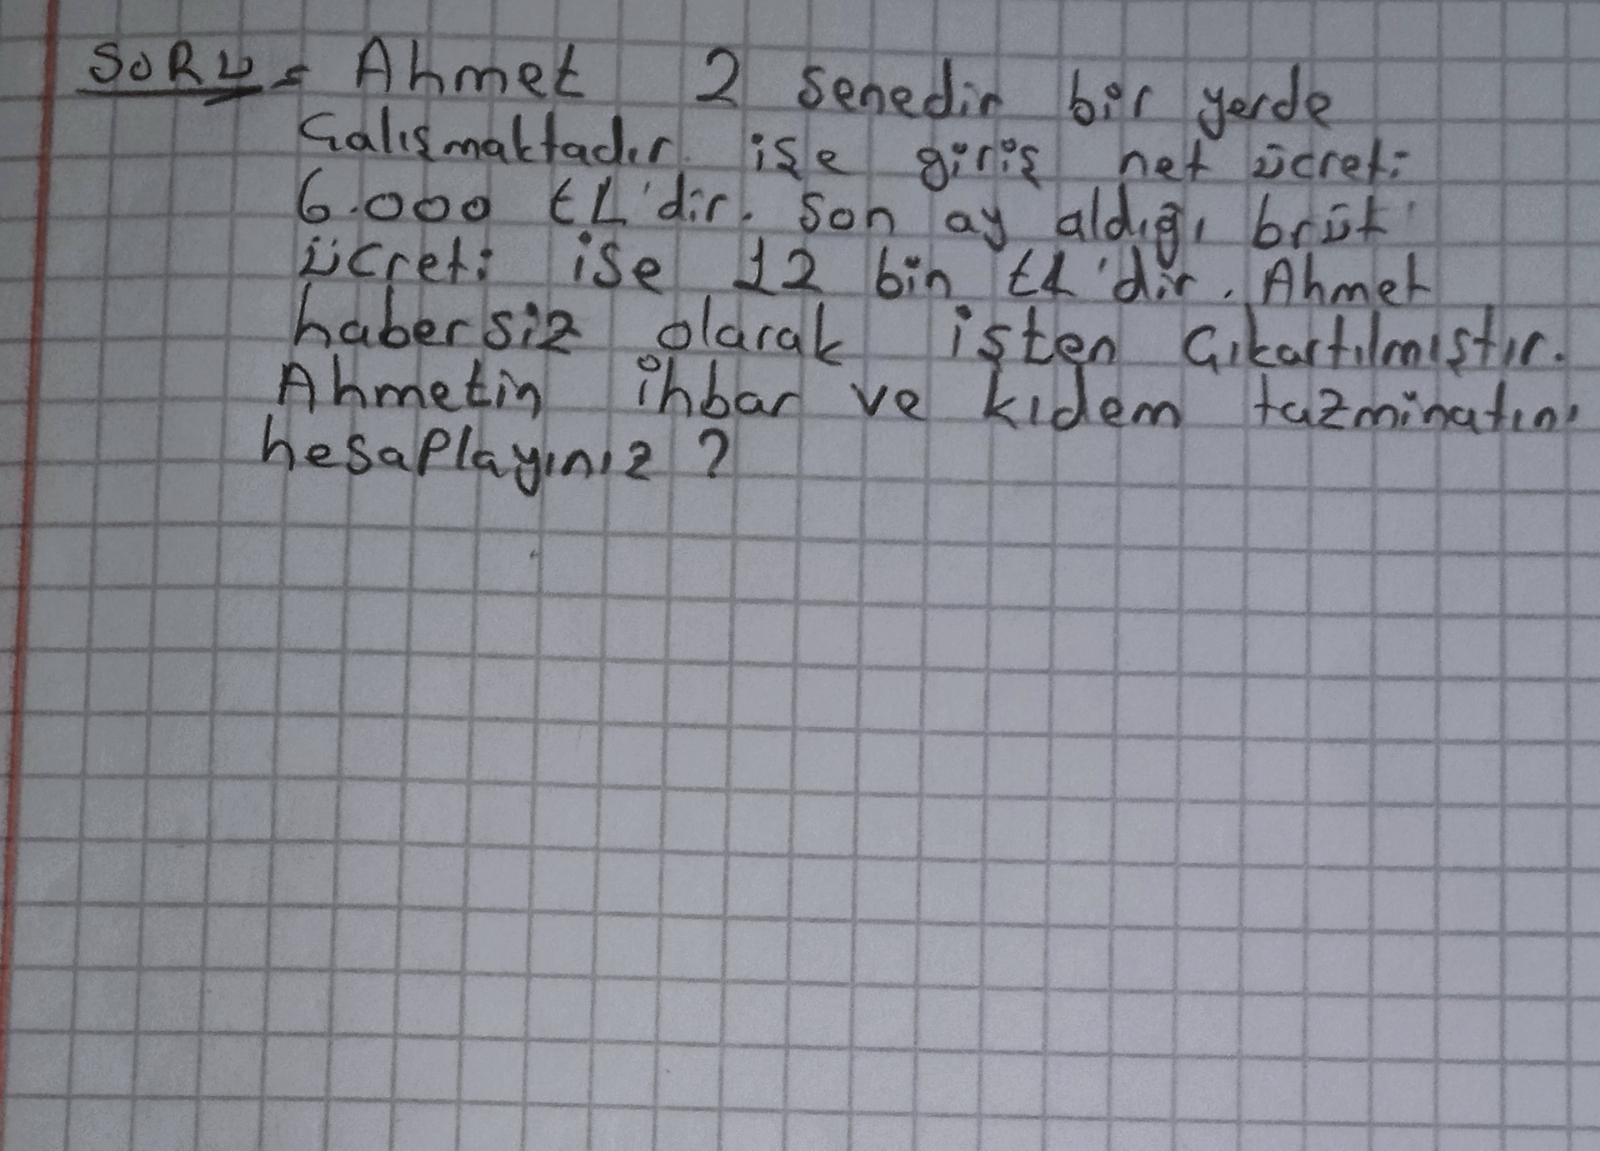 SORU = Ahmet 2 senedir bir yerde
Çalışmaktadır. işe giriş net ücreti
6.000 tL'dir. Son ay aldığı brüt
ücreti ise 12 bin tL'dir. Ahmet
habersiz olarak işten Çıkartılmıştır.
Ahmetin ihbar ve kıdem tazminatını
hesaplayınız ?